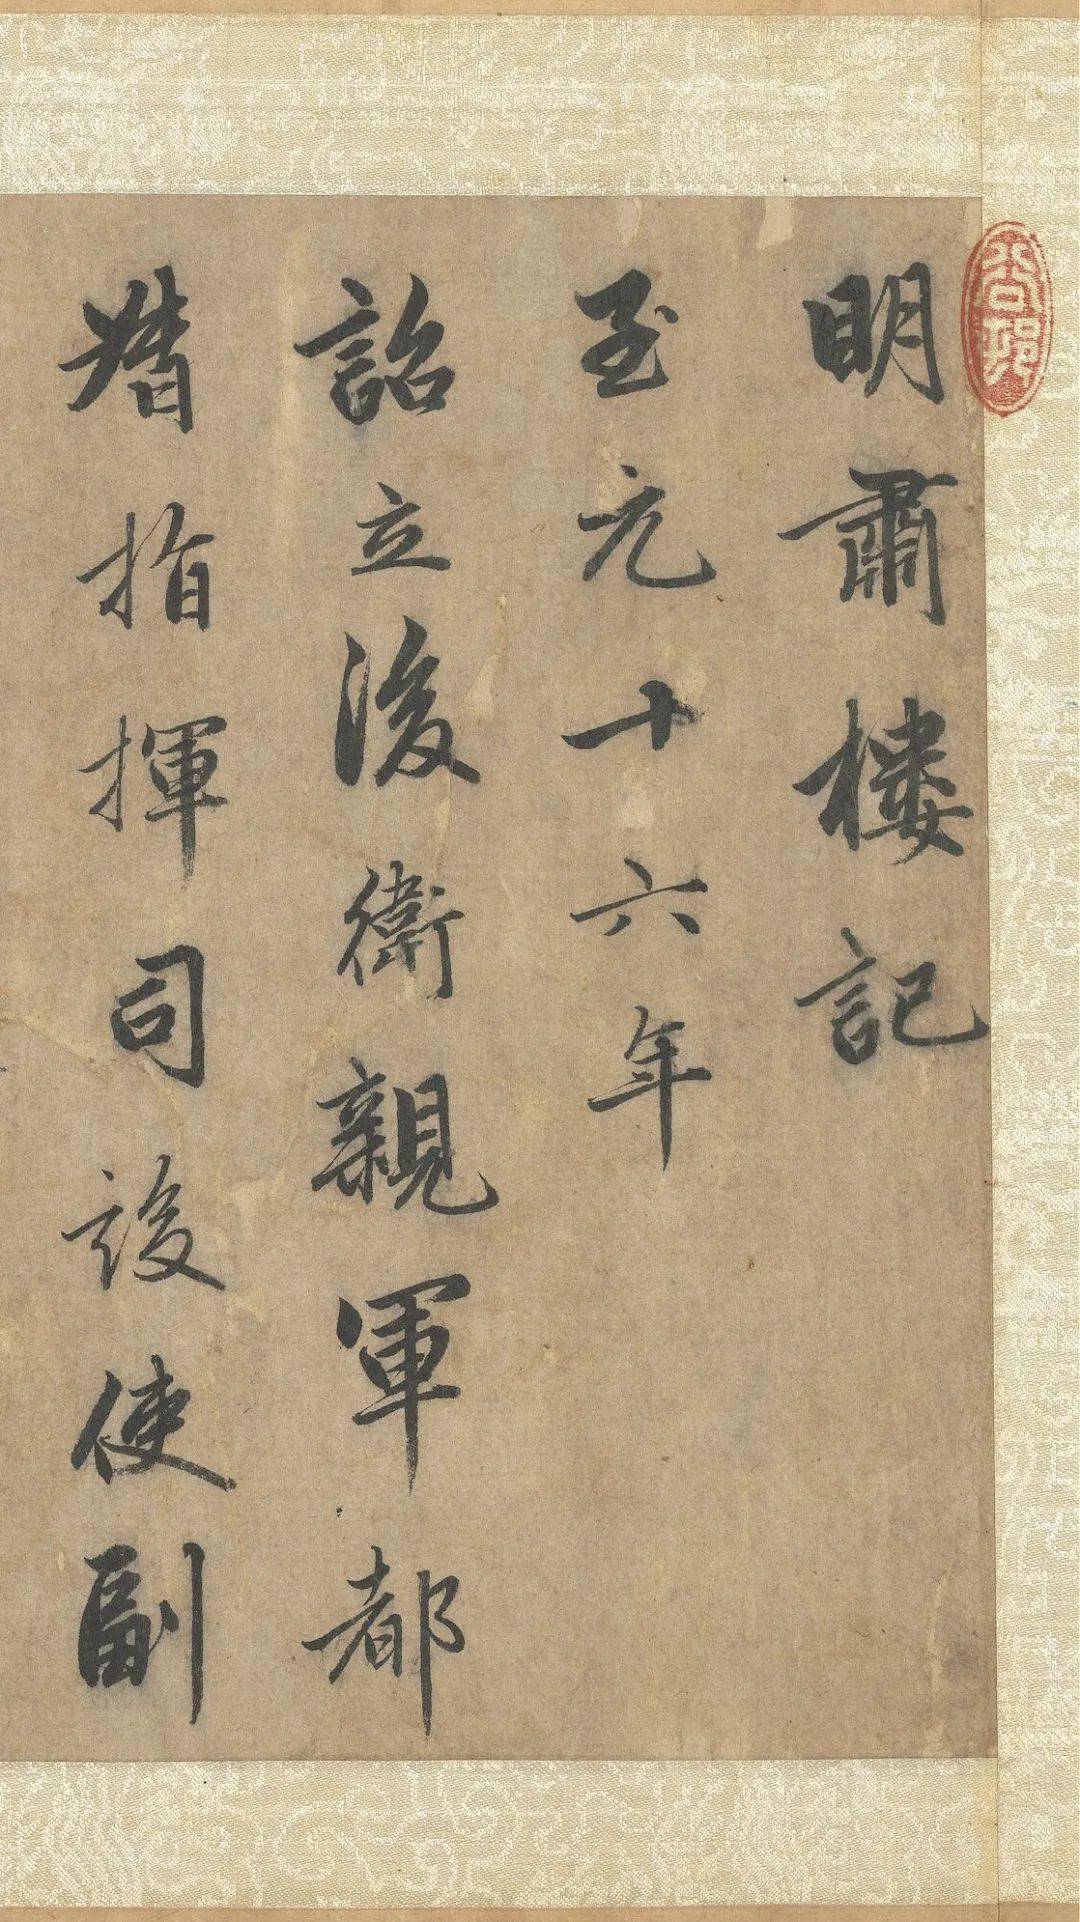 明肅樓記
至元十六年
詔立後衛親軍都
指揮司設使副